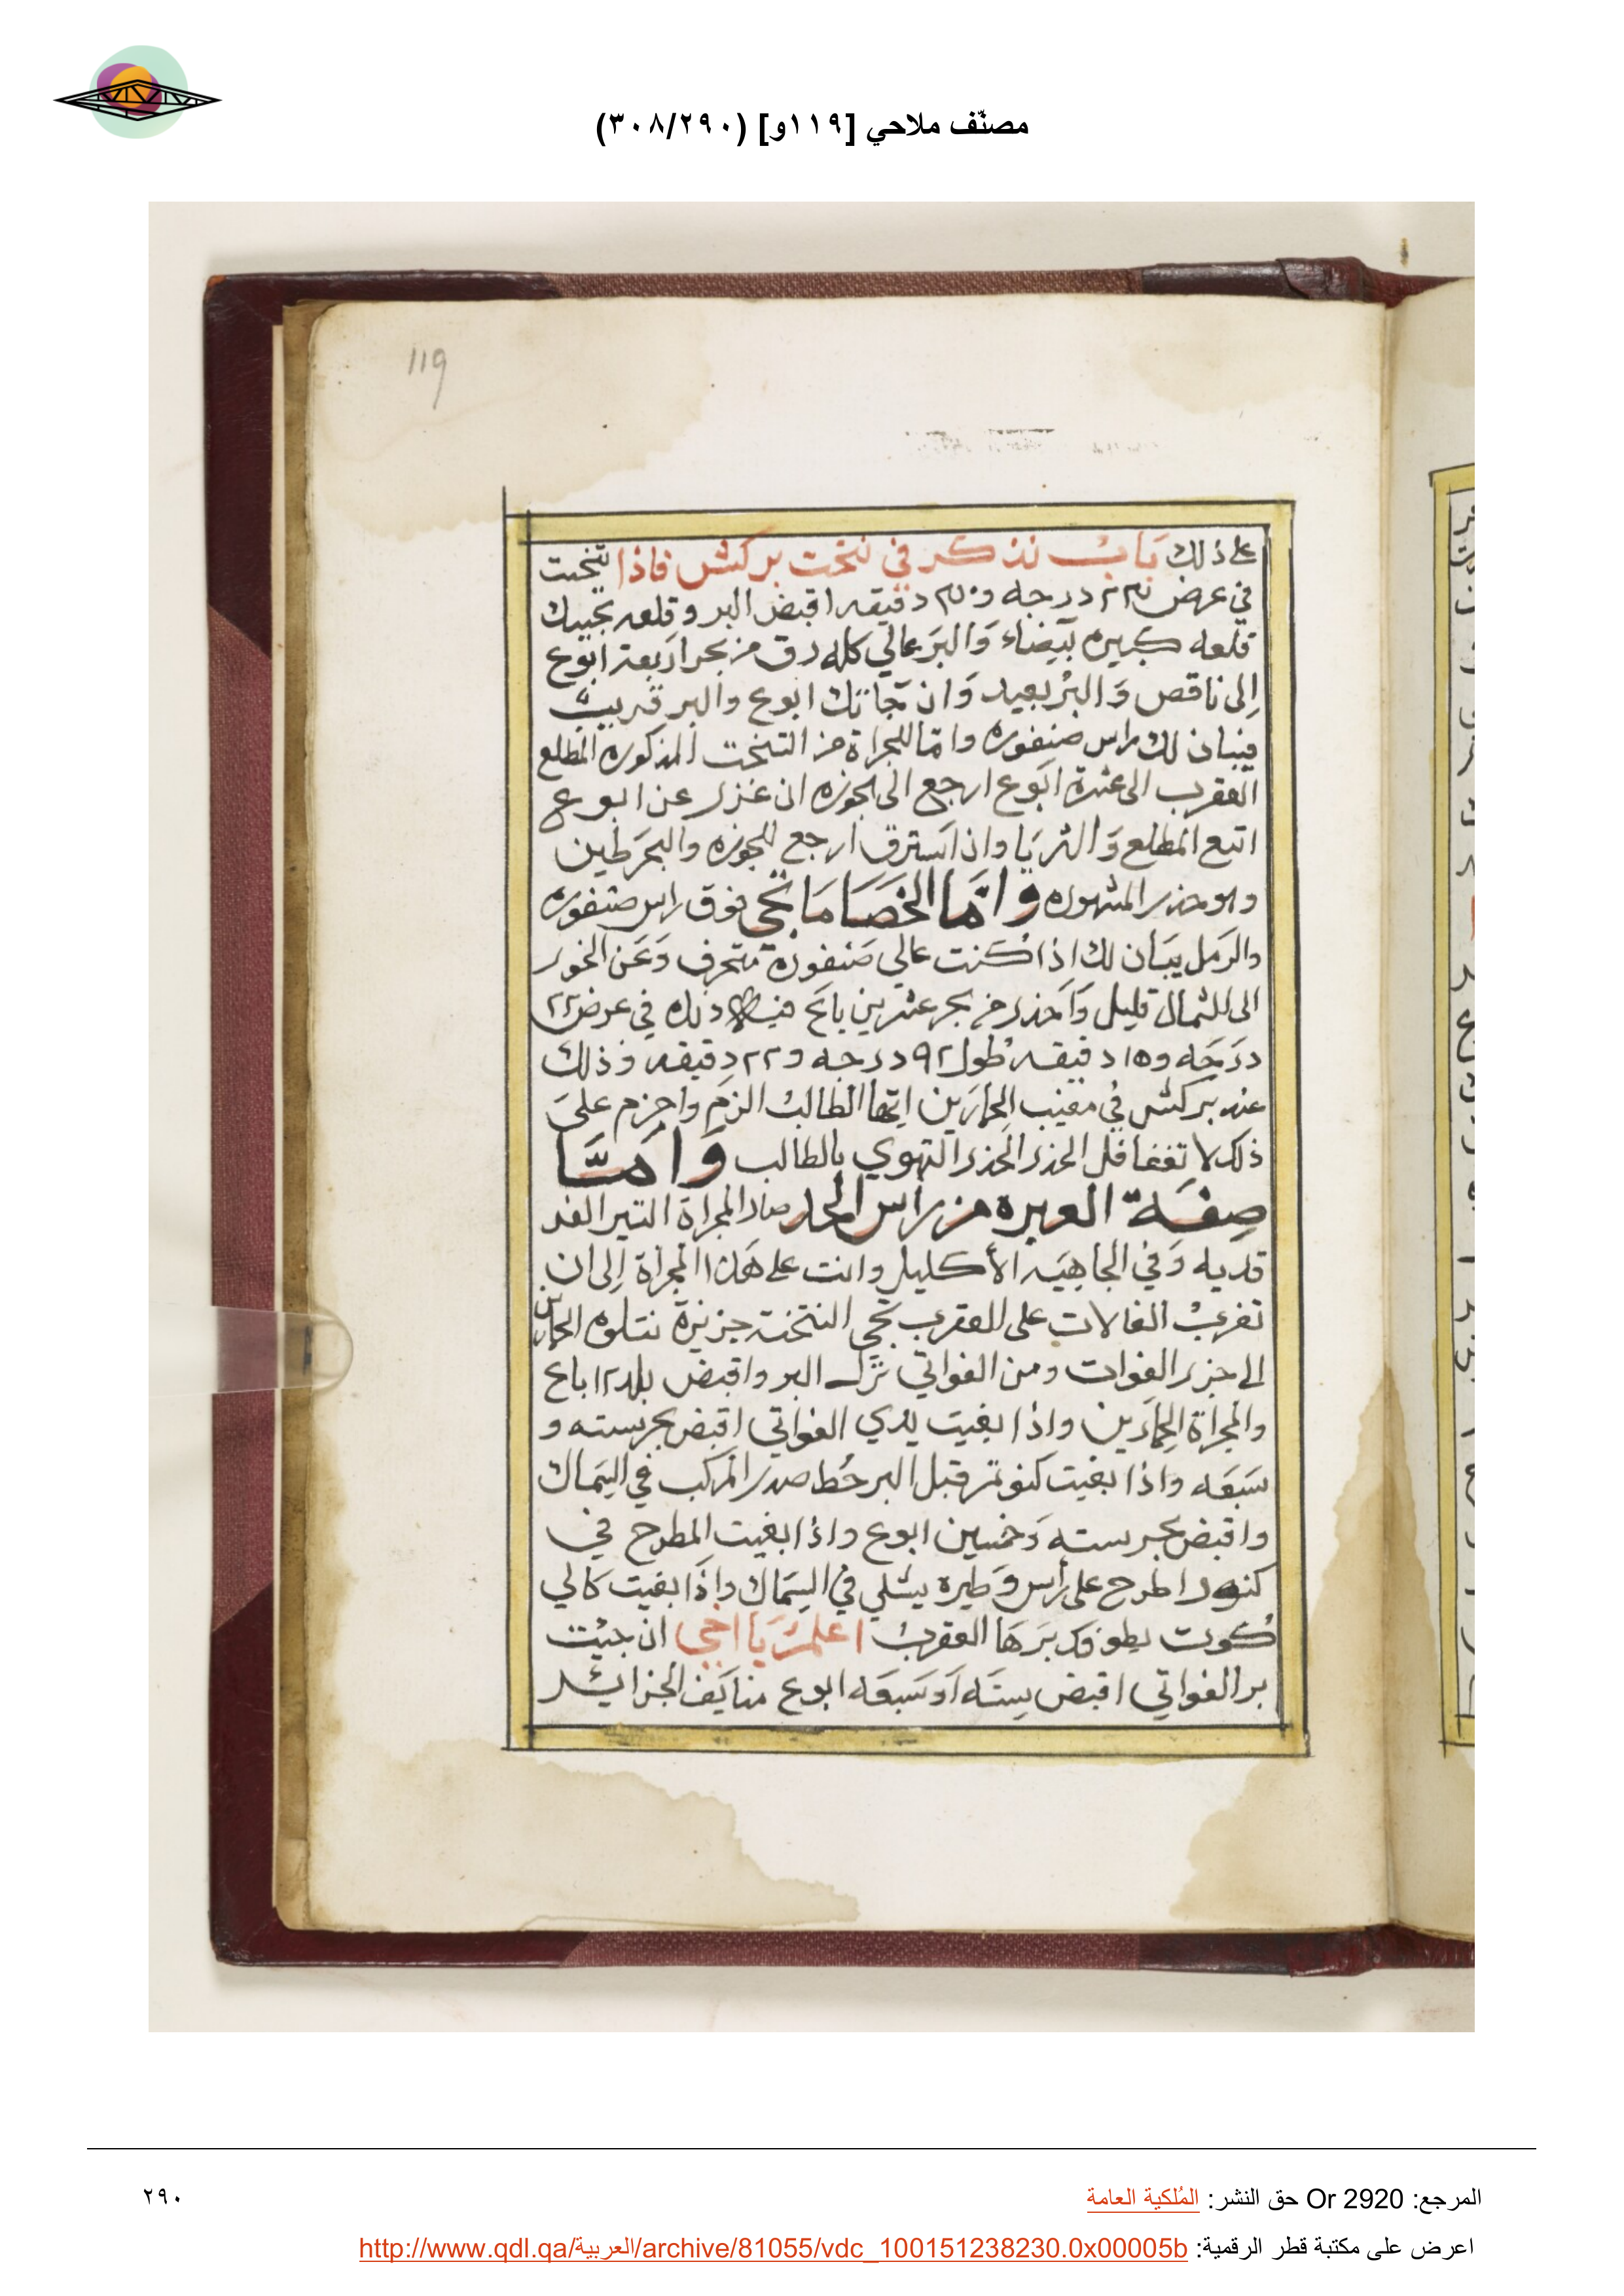 مصنّف ملاحي [١١٩و] (٣٠٨/٢٩٠)
119
على ذلك بَابُ نذكر في نتخت بركش فاذا نتخت
في عرض درجه و دقيقه اقبض البر وقلعه تجيك
قلعه كبيره بَيضاء وَالبرَ عالي كله رق من بحر اربعة ابوع
إلى ناقص وَالبرُ بعيد وَان جَاتك ابوع والبر قريبُ
فيبان لك راس صنفوره واما المجراة من التنخت المذكوره المطلع
العقرب الى عشرة ابَوع ارجع الى الجوزه ان غزر عن ابوع
اتبع المطلع وَالثريَا واذا استرق ارجع للجوزه والبحر طين
وهو حذر المشهوره وامَا الخصَامَا تجي فوق راس صنفوره
والرَمل يبَان لك اذا كنت عالي صَنفورة متحرف وَعَن الخور
الى الشمال قليل وَاَحذر من بحر عشرين باع فيه دله في عرض ٢٢
درَجَه و١٥ دقيقه طول ٩٢ درجه و٢٢ دقيقه وذلك
عند بركش في مغيب الحمارَين ايّها الطالبُ الزم واجزم على
ذلك لا تغفا فل الحذر الحذر التهوي بالطالب وَامَّا
صِفَة العبره من رأس الحد صار المجراة التير الفد
قديه وَفي الجاهِيَه الأكليل وانت على هَذا المجرَاة إلى ان
تغربُ الفالات على العقرب تجي النتخة جزيرة نتلوه الحمارين
الى جزر الفوات ومن الفواتي نزل البر واقبض بلد ١٢ باع
والمجرَاة الحِمارَين واذا بغيت يدي الفواتي اقبض بحر سته و
سَبعَه واذا بغيت كنو تر قبل البر حُط صدر المركب في السِمَاك
واقبض بحر سته وَخمسين ابوع واذا بغيت المطرح في
كنور اطرح على رأس وَطيره يشلي في السِمَاك واذَا بغيت كالي
كُوت يطوفك بَرهَا العقربُ اعلمَ يَا اخي ان جيْت
بر الفواتي اقبض سِتَه اَو سَبعَه ابوع منايَف الجزائر
المرجع: Or 2920 حق النشر: المُلكية العامة
٢٩٠
اعرض على مكتبة قطر الرقمية: http://www.qdl.qa/العربية/archive/81055/vdc_100151238230.0x00005b